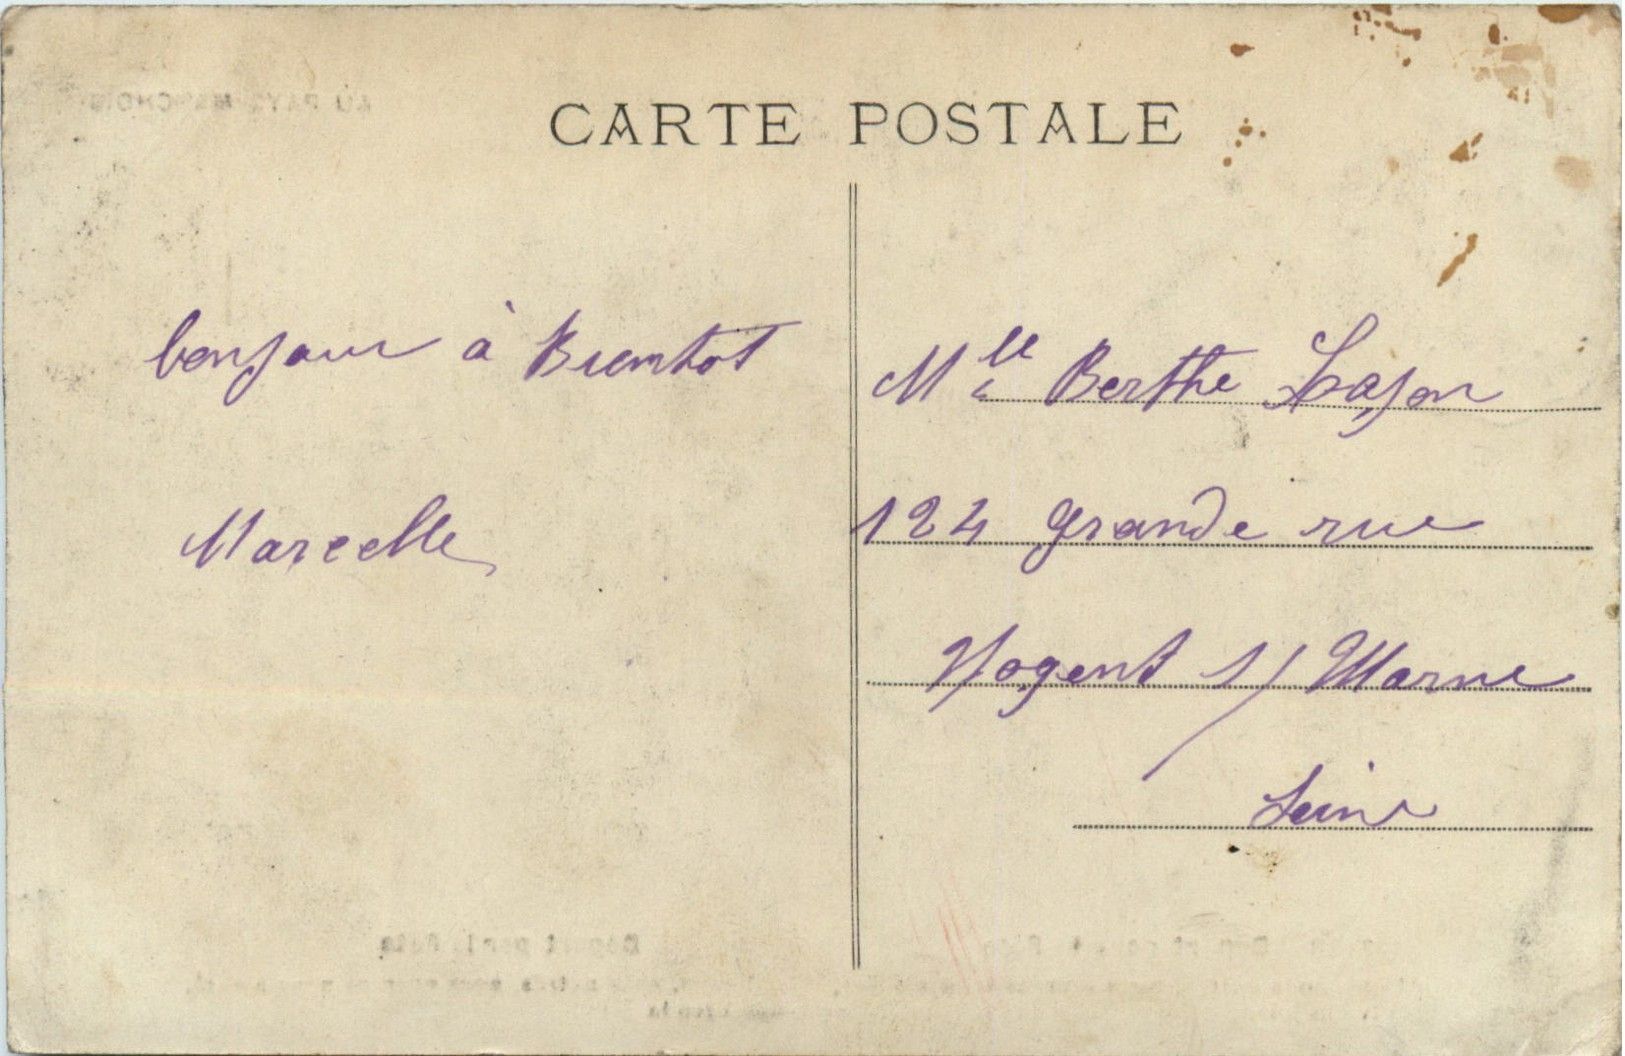 CARTE POSTALE
bonjour à Bientot
Marcelle
Mlle Berthe
124 grande rue
Nogent s/ Marne
Seine